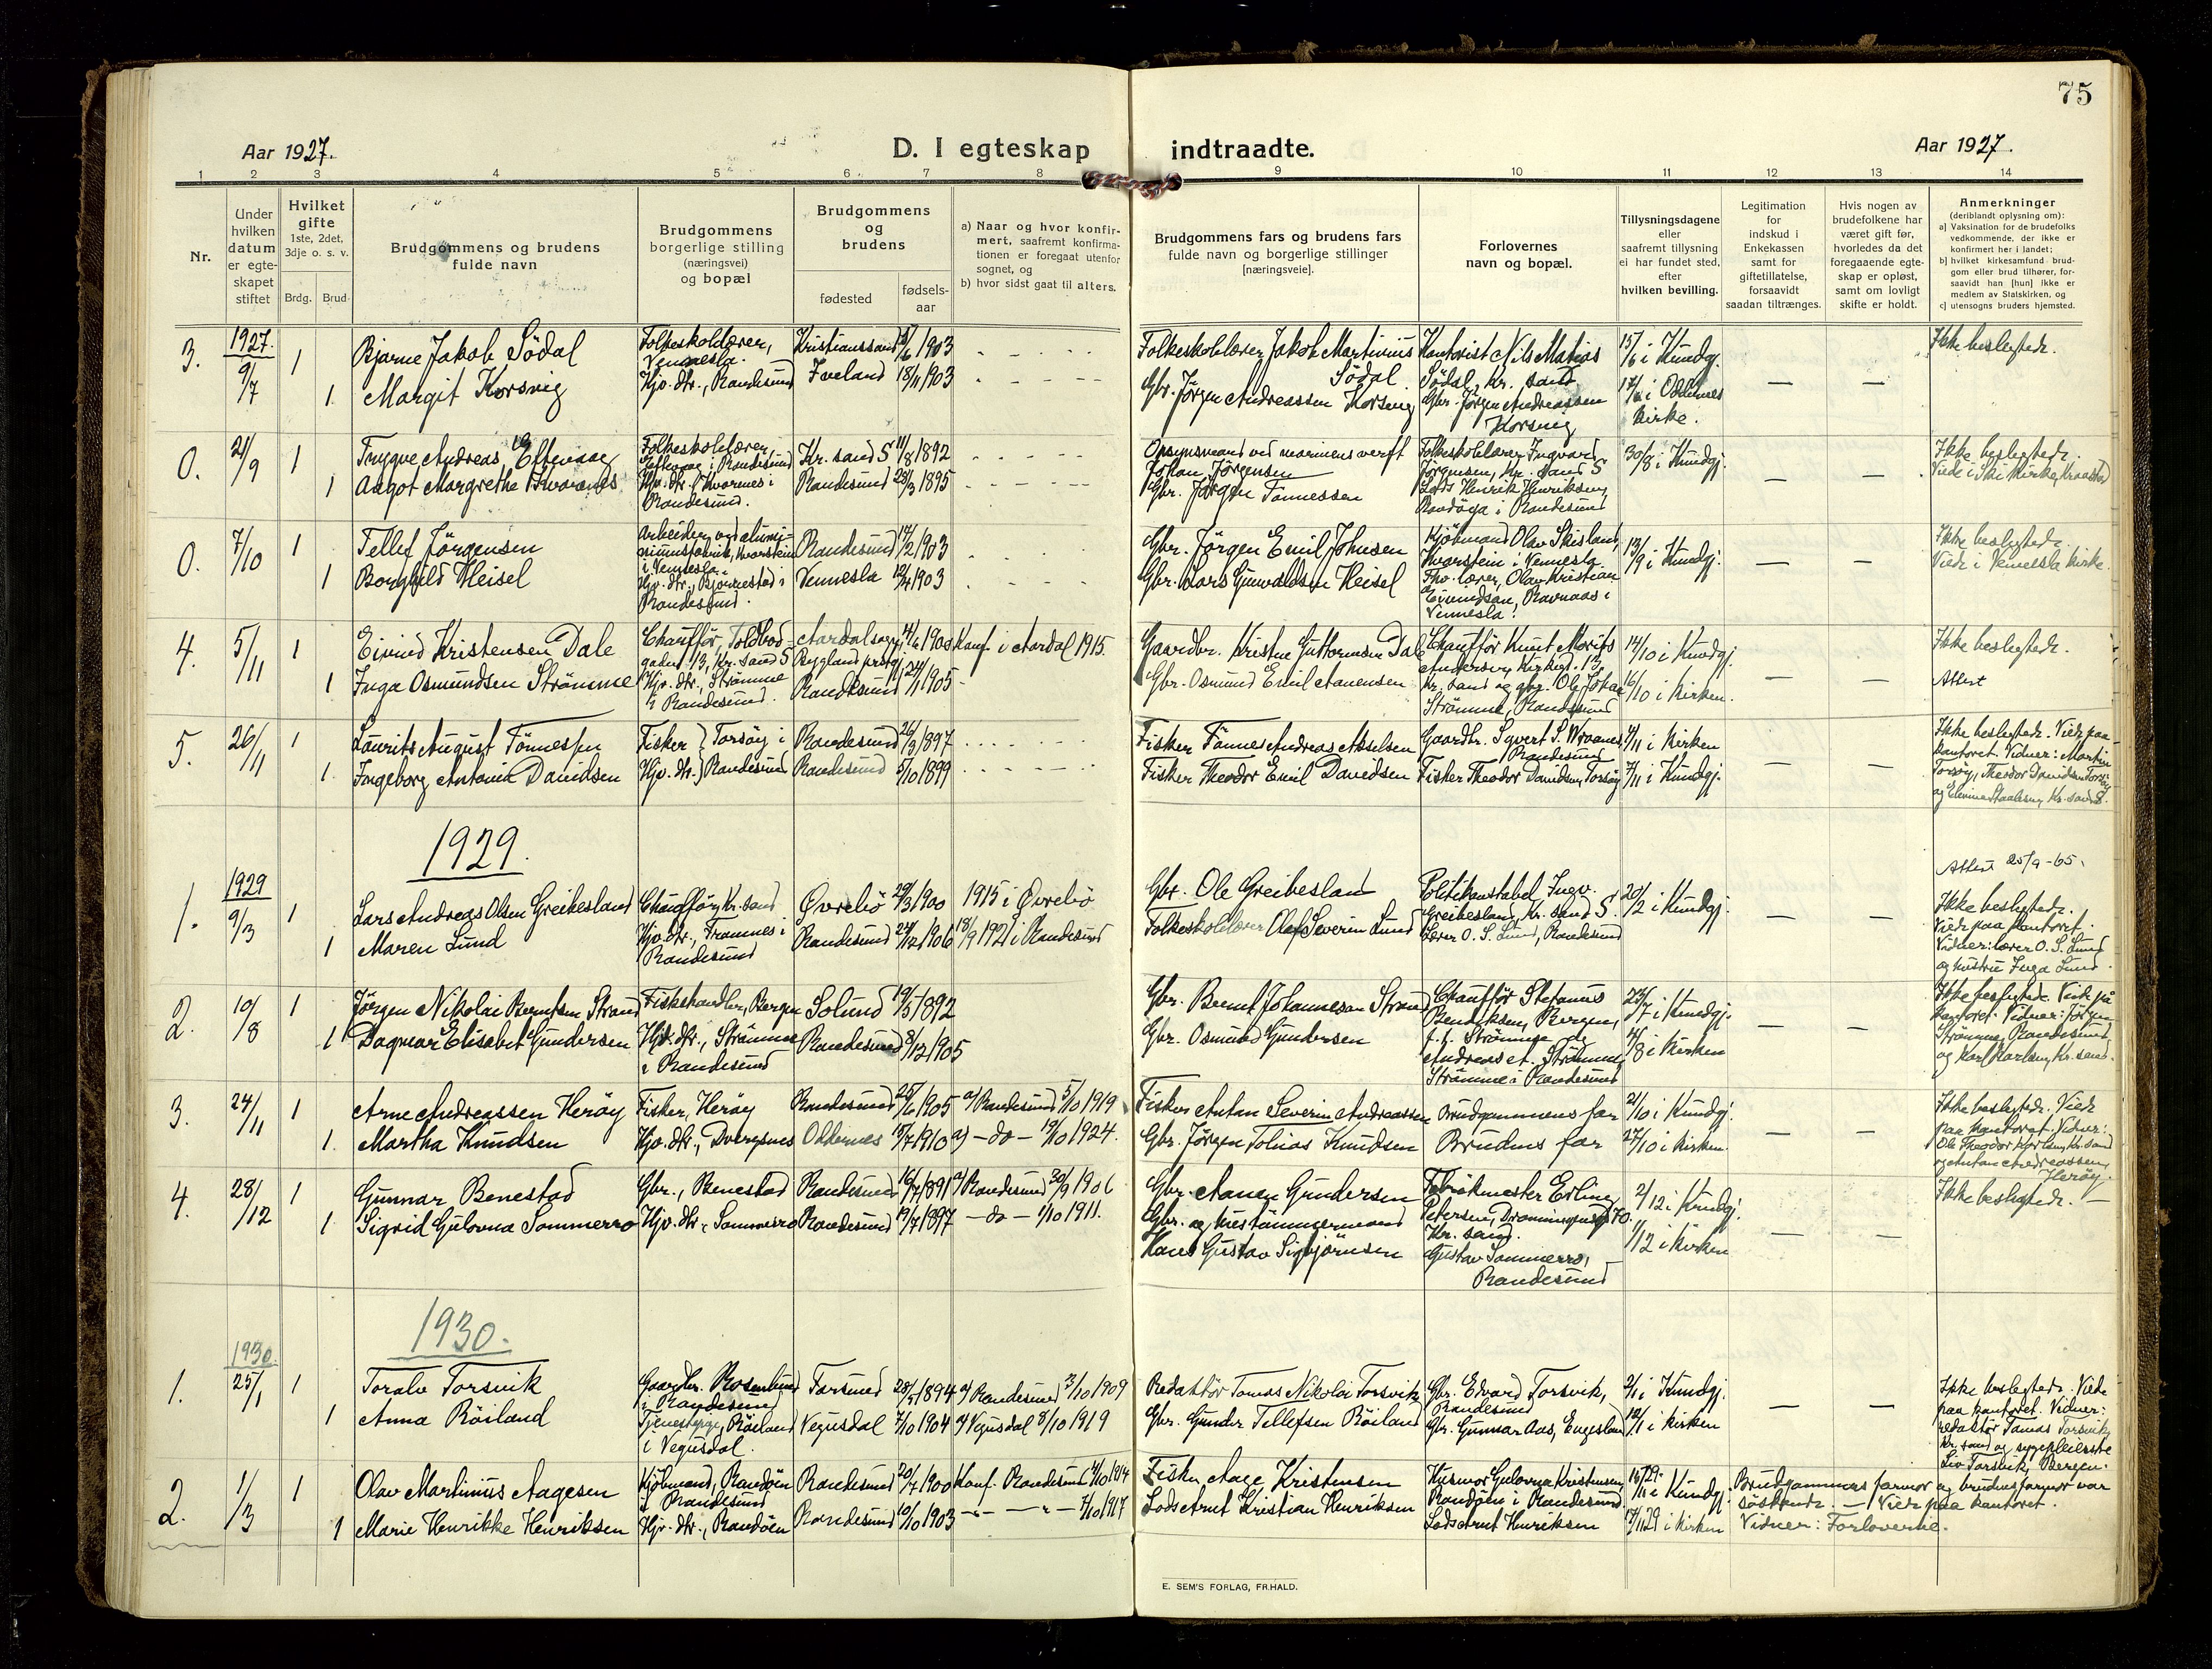 75
Aar 1927.
D. I egteskap indtraadte.
Aar 1927.
1 2 3 4 5 6 7 8 9 10 11 12 13 14
Nr.
Under
hvilken
datum
er egte-
skapet
stiftet
Hvilket
gifte
1ste, 2det,
3dje o. s. v.
Brdg. Brud
Brudgommens og brudens
fulde navn
Brudgommens
borgerlige stilling
(næringsvei)
og bopæl
Brudgommens
og
brudens
fødested
fødsels-
aar
a) Naar og hvor konfir-
mert, saafremt konfirma-
tionen er foregaat utenfor
sognet, og
b) hvor sidst gaat til alters.
Brudgommens fars og brudens fars
fulde navn og borgerlige stillinger
[næringsveie].
Forlovernes
navn og bopæl.
Tillysningsdagene
eller
saafremt tillysning
ei har fundet sted,
efter
hvilken bevilling.
Legitimation
for
indskud i
Enkekassen
samt for
giftetillatelse,
forsaavidt
saadan tiltrænges.
Hvis nogen av
brudefolkene har
været gift før,
hvorledes da det
foregaaende egte-
skap er opløst,
samt om lovligt
skifte er holdt.
Anmerkninger
(deriblandt oplysning om):
a) Vaksination for de brudefolks
vedkommende, der ikke er
konfirmert her i landet;
b) hvilket kirkesamfund brud-
gom eller brud tilhører, for-
saavidt han [hun] ikke er
medlem av Statskirken, og
c) utensogns bruders hjemsted.
3.
1927.
9/7
1
Bjarne Jakob Södal
Folkeskolelærer,
Vennesla.
Kristianssand
1903
Folkeskolelærer Jakob Martinius
Södal
Kontorist Nils Matias
Södal, Kr. sand
15/6 i Kundgj.
Ikke beslegtede.
1
Margit Korsvig
Hjv. dtr., Randesund
Iveland
18/11 1903
Gbr. Jörgen Andreassen Korsvig
Gbr. Jörgen Andreassen
Korsvig
i Oddernes
kirke.
0.
21/9
1
Trygve Andreas Eftevaag
Folkeskolelærer
Eftevaag i Randesund
Kr. sand S
11/8 1892
Opsynsmand ved marinens verft
Johan Jörgensen
Folkeskolelærer Ingvard
Jörgensen, Kr. sand S
30/8 i Kundgj.
Ikke beslegtede.
1
Aagot Margrethe Kvarenes
Hjv. dtr. Kvarnes i
Randesund.
Randesund
28/3 1895
Gbr. Jörgen Tönnessen
Lods Henrik Henriksen,
Randöya i Randesund
0.
7/10
1
Tellef Jörgensen
Arbeider ved alumi-
niumsfabrik, Kvarstein
i Vennesla.
Randesund
17/2 1903
Gbr. Jörgen Emil Johnsen
Kjöbmand Olav Skisland,
Kvarstein i Vennesla.
13/9 i Kundgj.
Ikke beslegtede.
Viede i Vennesla kirke.
1
Borghild Heisel
Hjv. dtr., Bjönnestad i
Randesund.
Vennesla
1903
Gbr. Lars Gunvaldsen Heisel
Fhv. lærer, Olav Kristian
Eivindsen, Ravnaas i
Vennesla.
4.
5/11
1
Eivind Kristensen Dale
Chaufför, Toldbod-
gaten 13, Kr. sand S
Aardal sogn,
Bygland prstgj.
1900
Konf. i Aardal 1915.
Gaardbr. Kristen Guttormsen Dale
Chaufför Knut Morits
Andersen, Kirkegt. 13,
14/10 i Kundgj.
Ikke beslegtede.
1
Inga Osmundsen Strömme
Hjv. dtr., Strömme
i Randesund.
Randesund
1905
Gbr. Osmund Emil Aanensen
Kr. sand og gbr. Ole Johan
Strömme, Randesund
16/10 i Kirken.
Attest
5.
26/11
1
Laurits August Tönnessen
Fisker } Torsöy i
Randesund
26/9 1897
Fisker Tönnes Andreas Akselsen
Gaardbr. Syvert S. Wraanes,
Randesund
i Kirken
Ikke beslegtede. Viede paa
kontoret. Vidner: Martin
Torsöy, Theodor Davidsen Torsöy
1
Ingeborg Antonia Davidsen
Hjv. dtr. } Randesund
Randesund
5/10 1899
Fisker Theodor Emil Davidsen
Fisker Theodor Davidsen, Torsöy
7/11 i Kundgj.
1929.
Attest 25/9-65.
1.
1929
9/3
1
Lars Andreas Olsen Greibesland
Chaufför, Kr. sand
Øvrebö
29/3 1900
1915 i Øvrebö
Gbr. Ole Greibesland
Politikonstabel Ingv.
Greibesland, Kr. sand S.
20/2 i Kundgj.
Ikke beslegtede.
Viede paa kontoret.
Vidner: lærer O. S. Lund
og hustru Inga Lund.
1
Maren Lund
Hjv. dtr., Tramnes i
Randesund
Randesund
24/12 1906
18/9 1921 i Randesund
Folkeskolelærer Olaf Severin Lund
Lærer O. S. Lund, Randesund
2.
10/8
1
Jörgen Nikolai Berntsen Strand
Fiskehandler, Bergen
Solund
19/5 1892
Gbr. Bernt Johannesen Strand
Chaufför Stefanus
Bendiksen, Bergen,
23/7 i Kundgj.
Ikke beslegtede. Viede på
kontoret. Vidner: Jörgen
Strömme, Randesund,
og Karl Karlsen, Kr. sand.
1
Dagmar Elisabet Gundersen
Hjv. dtr., Strömme
i Randesund
Randesund
8/12 1905
Gbr. Osmund Gundersen
f. t. Strömme og
Andreas A. Strömme,
Strömme i Randesund
4/8 i Kirken
3.
24/11
1
Arne Andreassen Heröy
Fisker, Heröy
Randesund
25/6 1905
a) Randesund 5/10 1919
Fisker Antan Severin Andreassen
Brudgommens far
21/10 i Kundgj.
Ikke beslegtede. Viede
paa kontoret. Vidner:
Ole Theodor Karlsen, Kr. sand
og Antan Andreassen,
Heröy.
1
Martha Knudsen
Hjv. dtr., Dvergsnes
Oddernes
15/7 1910
a) — do — 19/10 1924.
Gbr. Jörgen Tobias Knudsen
Brudens far
27/10 i Kirken.
4.
28/12
1
Gunnar Benestad
Gbr., Benestad
Randesund
16/7 1891
a) Randesund 30/9 1906
Gbr. Aanen Gundersen
Fabrikmester Erling
Petersen, Dronningensgt 70.
Kr. sand.
2/12 i Kundgj.
Ikke beslegtede. —
1
Sigrid Gulovna Sommerro
Hjv. dtr., Sommerro
Randesund
19/7 1897
— do — 1/10 1911.
Gbr. og hustömmermand
Hans Gustav Sigbjörnsen
Gustav Sommerro,
Randesund
1/12 i Kirken
1930.
1.
1930.
25/1
1
Toralv Torsvik
Gaardbr. Rosenlund
i Randesund
Farsund
28/5 1894
a) Randesund 3/10 1909
Redaktör Tomas Nikolai Torsvik
Gbr. Edvard Torsvik,
Randesund
2/1 i Kundgj.
Ikke beslegtede. Viede
paa kontoret. Vidner:
redaktör Tomas Torsvik,
Kr. sand og sygepleierske
Liv Torsvik, Bergen.
1
Anna Röiland
Tjenestepge, Röiland
i Vegusdal.
Vegusdal
7/10 1904
a) Vegusdal 8/10 1919
Gbr. Gunder Tellefsen Röiland
Gbr. Gunnar Aas, Engesland
12/1 i Kirken
2.
1/3
1
Olav Martinius Aagesen
Kjöbmand, Randöen
i Randesund
Randesund
20/7 1900
Konf. Randesund 4/10 1914
Fisker Aage Kristensen
Husmor Gulovna Kristensen,
Randöen i Randesund.
i Kundgj.
Brudgommens farmor og brudens farmor var
söskende. — Viede paa kontoret.
1
Marie Henrikke Henriksen
Hjv. dtr., Randöen
Randesund
10/10 1903
—"— —"— 7/10 1917
Lods Arnt Kristian Henriksen
Lods Arnt Henriksen
17/11 29 i Kirken
Vidner: Forloverne.
E. SEM'S FORLAG, FR.HALD.